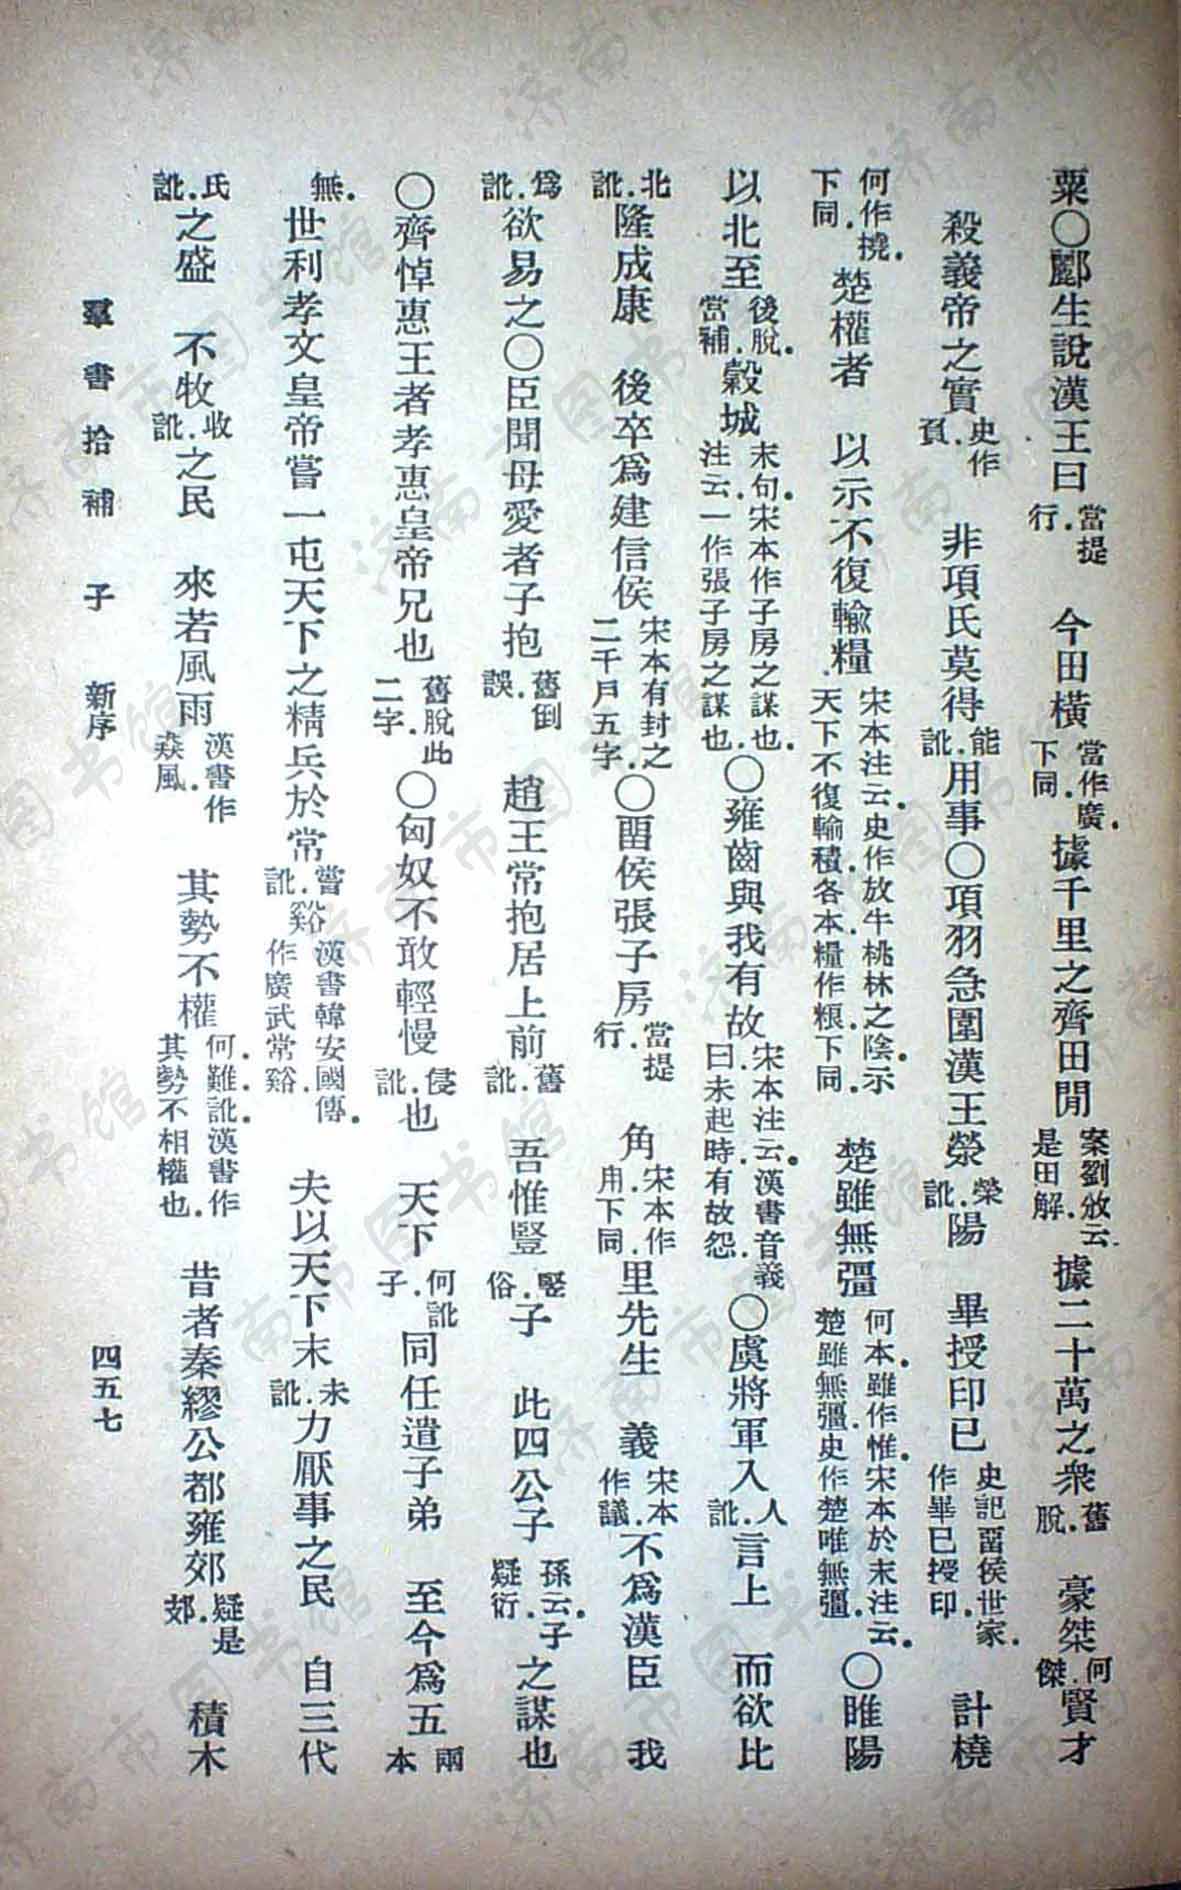 粟○酈生說漢王曰當提行.　今田橫當作廣.下同.據千里之齊田閒案劉攽云.是田解.據二十萬之衆舊脫.　豪桀何.傑賢才
殺義帝之實史作頁.　非項氏莫得能訛.用事○項羽急圍漢王滎榮訛.陽　畢授印已史記畱侯世家.作畢已授印.　計橈
何作撓.下同.　楚權者　以示不復輸糧宋本注云.史作放牛桃林之陰.示天下不復輸積.各本糧作粮.下同.　楚雖無彊何本.雖作惟.宋本於末注云.楚雖無彊.史作楚唯無彊.○睢陽
以北至後脫.當補.穀城末句.宋本作子房之謀也.注云.一作張子房之謀也.○雍齒與我有故宋本注云.漢書音義曰.未起時有故怨.○虞將軍入人訛.言上　而欲比
北訛.隆成康　後卒爲建信侯宋本有封之二千戶五字.○畱侯張子房當提行.　角宋本作甪.下同.里先生　義宋本作議.不爲漢臣　我
爲訛.欲易之○臣聞母愛者子抱舊倒誤.　趙王常抱居上前舊訛.　吾惟豎竪.俗子　此四公子孫云.子疑衍.之謀也
○齊悼惠王者孝惠皇帝兄也舊脫此二字.○匈奴不敢輕慢侵訛.也　天下何訛子.同任遣子弟　至今爲五兩本
無.世利孝文皇帝嘗一屯天下之精兵於常嘗訛.谿漢書韓安國傳.作廣武常谿.　夫以天下末未訛.力厭事之民　自三代
氏訛.之盛　不牧收訛.之民　來若風雨漢書作猋風.　其勢不權何.難.訛.漢書作其勢不相權也.　昔者秦繆公都雍郊疑是郊.　積木
羣書拾補　子　新序　四五七